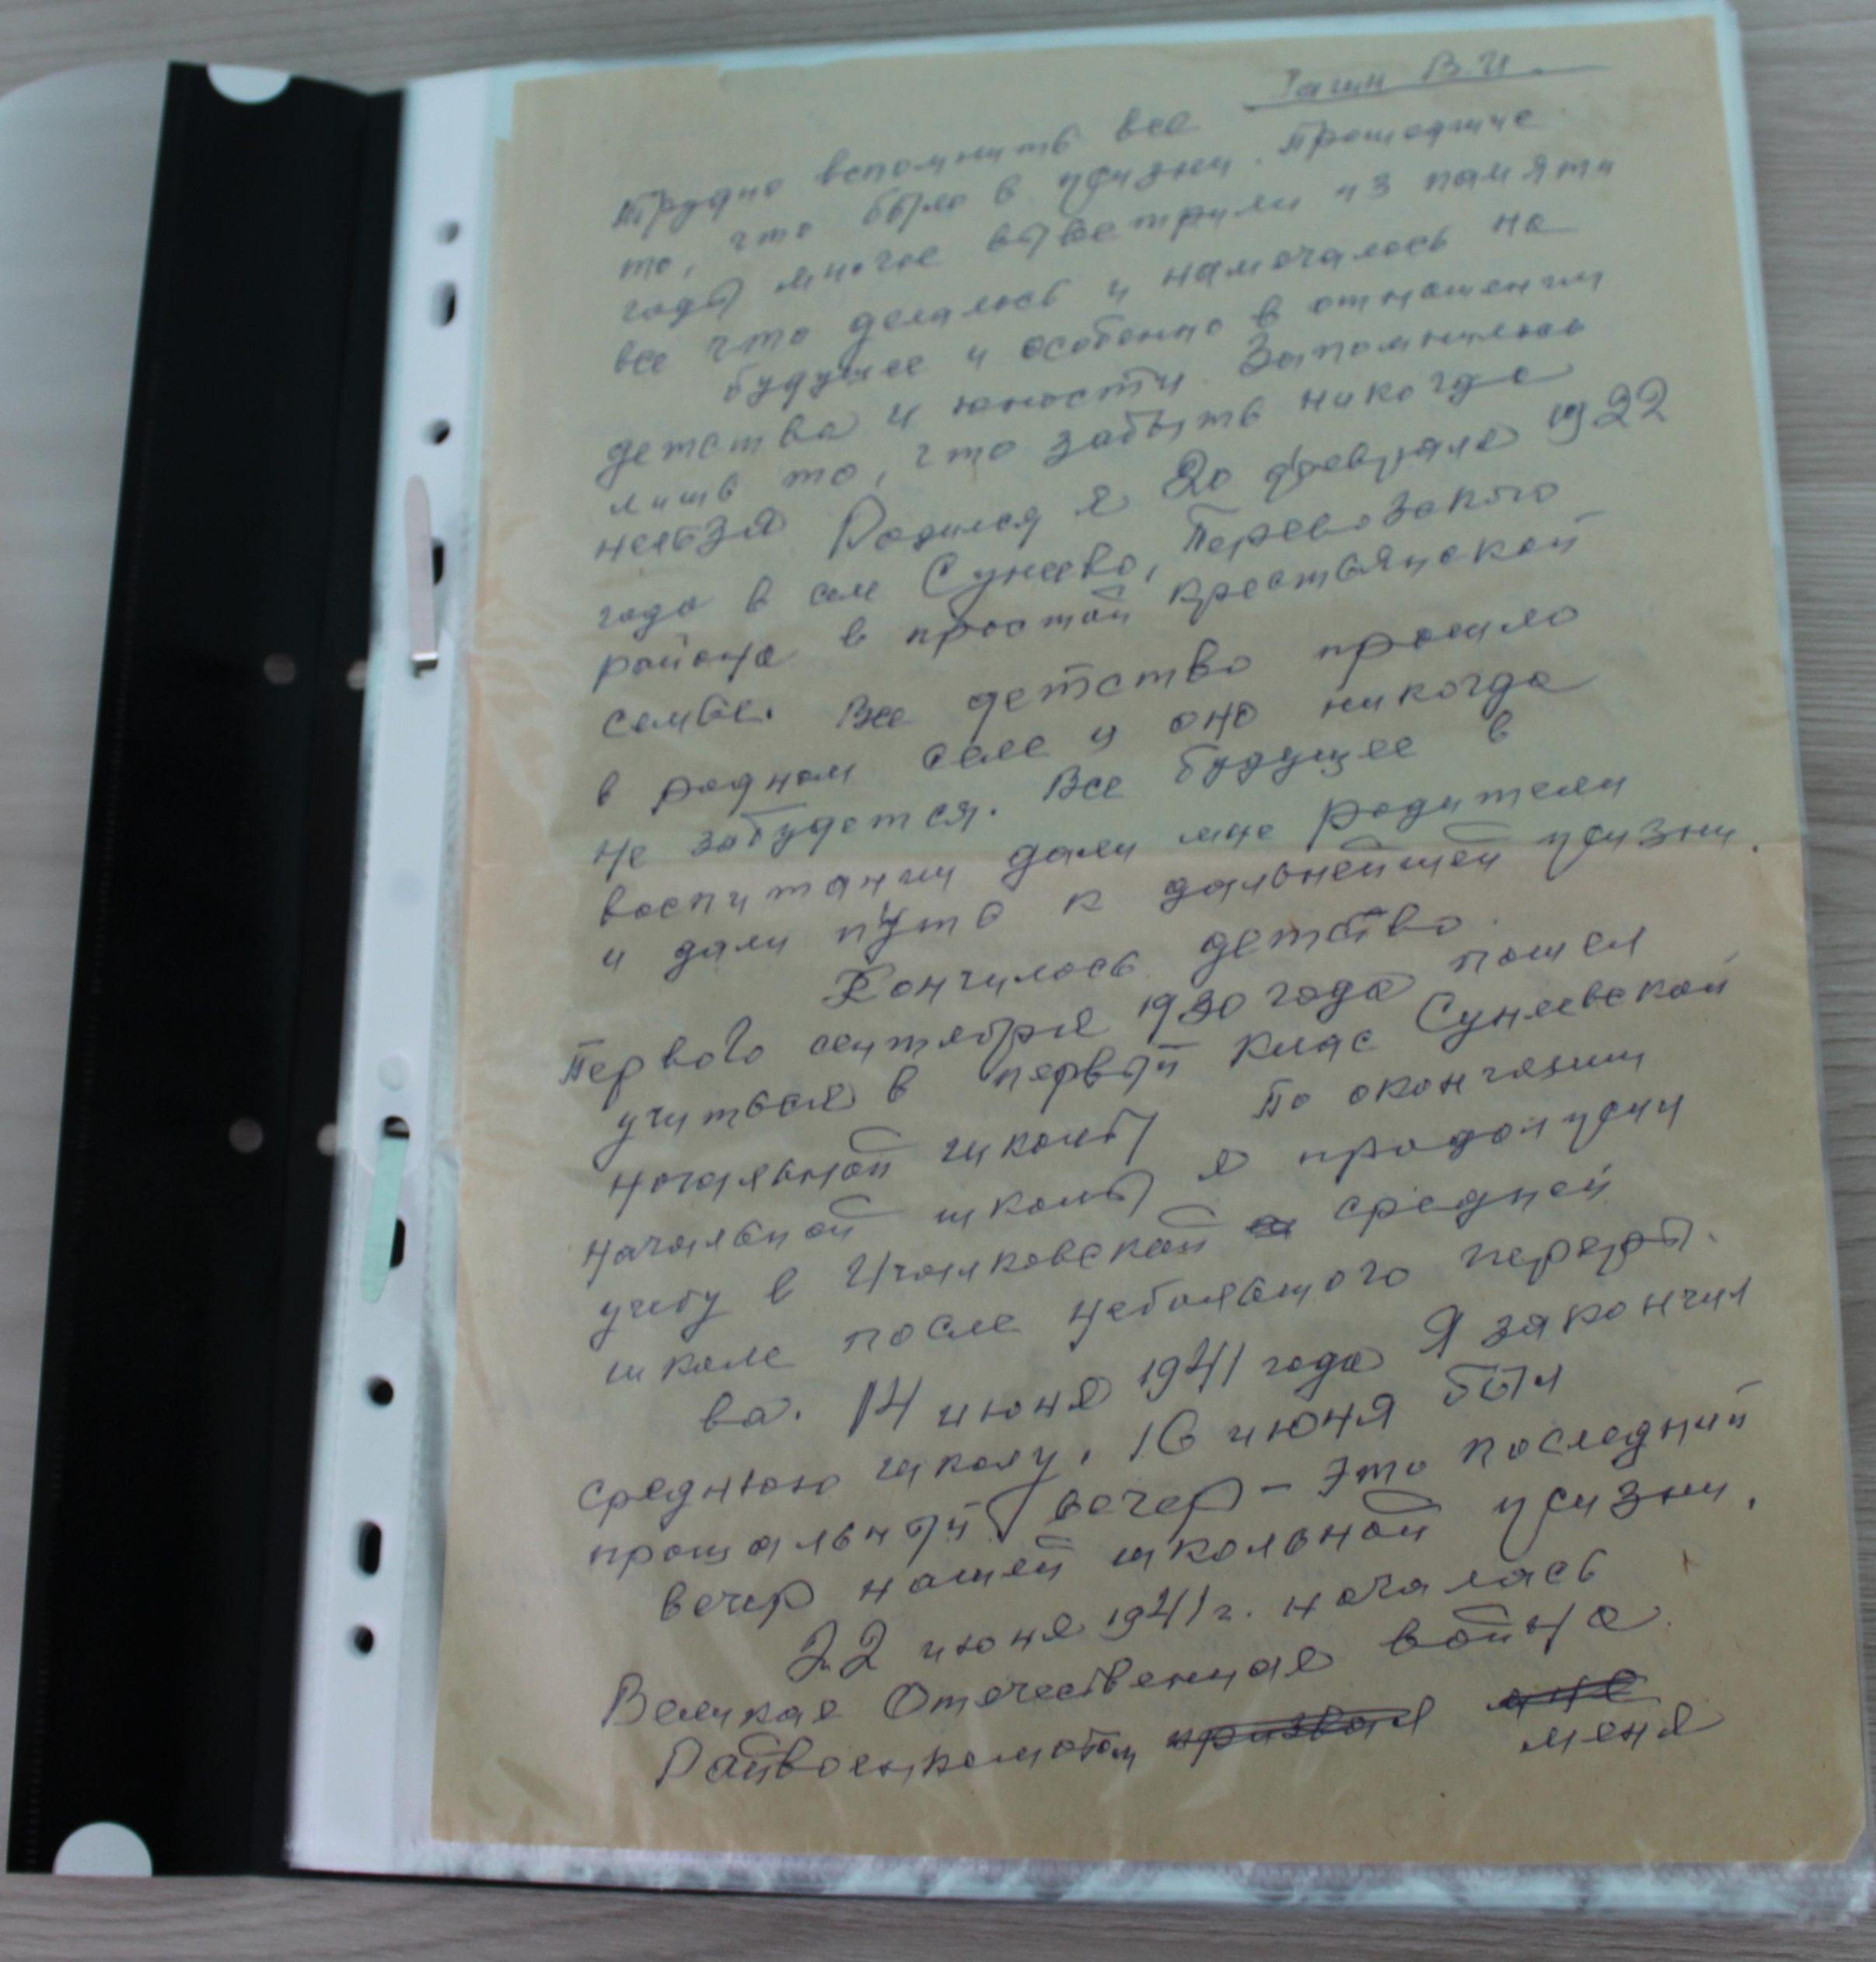 Гашин В.И.
Трудно вспомнить все
то, что было в жизни. Прошедшие
годы многое выветрили из памяти
все что делалось и намечалось на
будущее и особенно в отношении
детства и юности. Запомнилось
лишь то, что забыть никогда
нельзя Родился я 20 февраля 1922
года в селе Сунеево, Перевозского
района в простой крестьянской
семье. Все детство прошло
в родном селе и оно никогда
не забудется. Все будущее в
воспитании дали мне родители
и дали путь к дальнейшей жизни.
Кончилось детство.
Первого сентября 1930 года пошел
учиться в первый клас Сунеевской
начальной школы По окончании
начальной школы я продолжил
учебу в Ичалковской средней
школе после небольшого переры-
ва. 14 июня 1941 года Я закончил
среднюю школу, 16 июня был
прощальный вечер - это последний
вечер нашей школьной жизни.
22 июня 1941 г. началась
Великая Отечественная война.
Райвоенкоматом призвал мне
меня